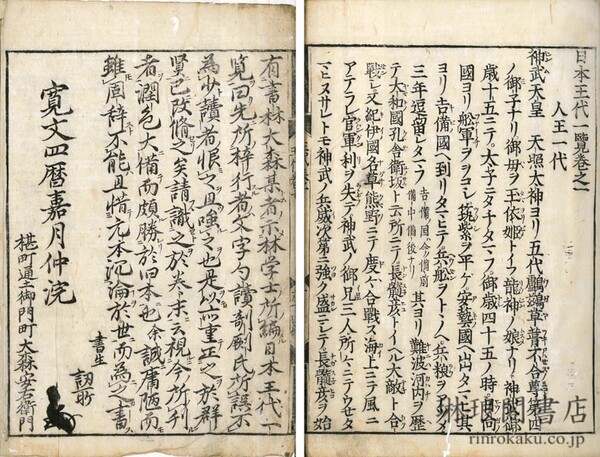 日本王代一覽巻之一
人王一代
神武天皇 天照太神ヨリ五代鸕鷀草葺不合尊第四
ノ御子ナリ御母ヲ玉依姫トイフ龍神ノ娘ナリ神武御
歳十五ニテ太子ニナリタマフ御歳四十五ノ時日向
國ヨリ舩軍ヲヲコシ筑紫ヲ平ケ安藝國ヘ出タマヒ其
ヨリ吉備國ヘ到リタマヒテ兵舩ヲトヽノヘ兵粮ヲアツメ
三年逗留シタマフ 吉備國今ノ備前備中備後ナリ 其ヨリ難波河内ヲ歴
テ大和國孔舎衛坂ト云所ニテ長髓彦トイヘル大敵ト合
戰シ又紀伊國名草熊野ニテ度々合戰ス海上ニテ風ニ
アテラレ官軍利ヲ失テ神武ノ御兄三人所々ニテウセタ
マヒヌサレトモ神武ノ兵威次第ニ強ク盛ニシテ長髓彦ヲ始
有書林大森某者示林学士所編日本王代一
覧曰先所梓行者文字句讀剞劂氏所誤不
為少讀者恨之且嗤之也是以重正之於群
賢已改脩之矣請識之於巻末云視今所刋
者潤色大備而頗勝於旧本也余誠庸陋而
雖固辞不能且惜元本沉淪於世而為之書
書生
寛文四暦嘉月仲浣
椹町通土御門町大森安右衛門
琳琅閣書店
rinrokaku.co.jp